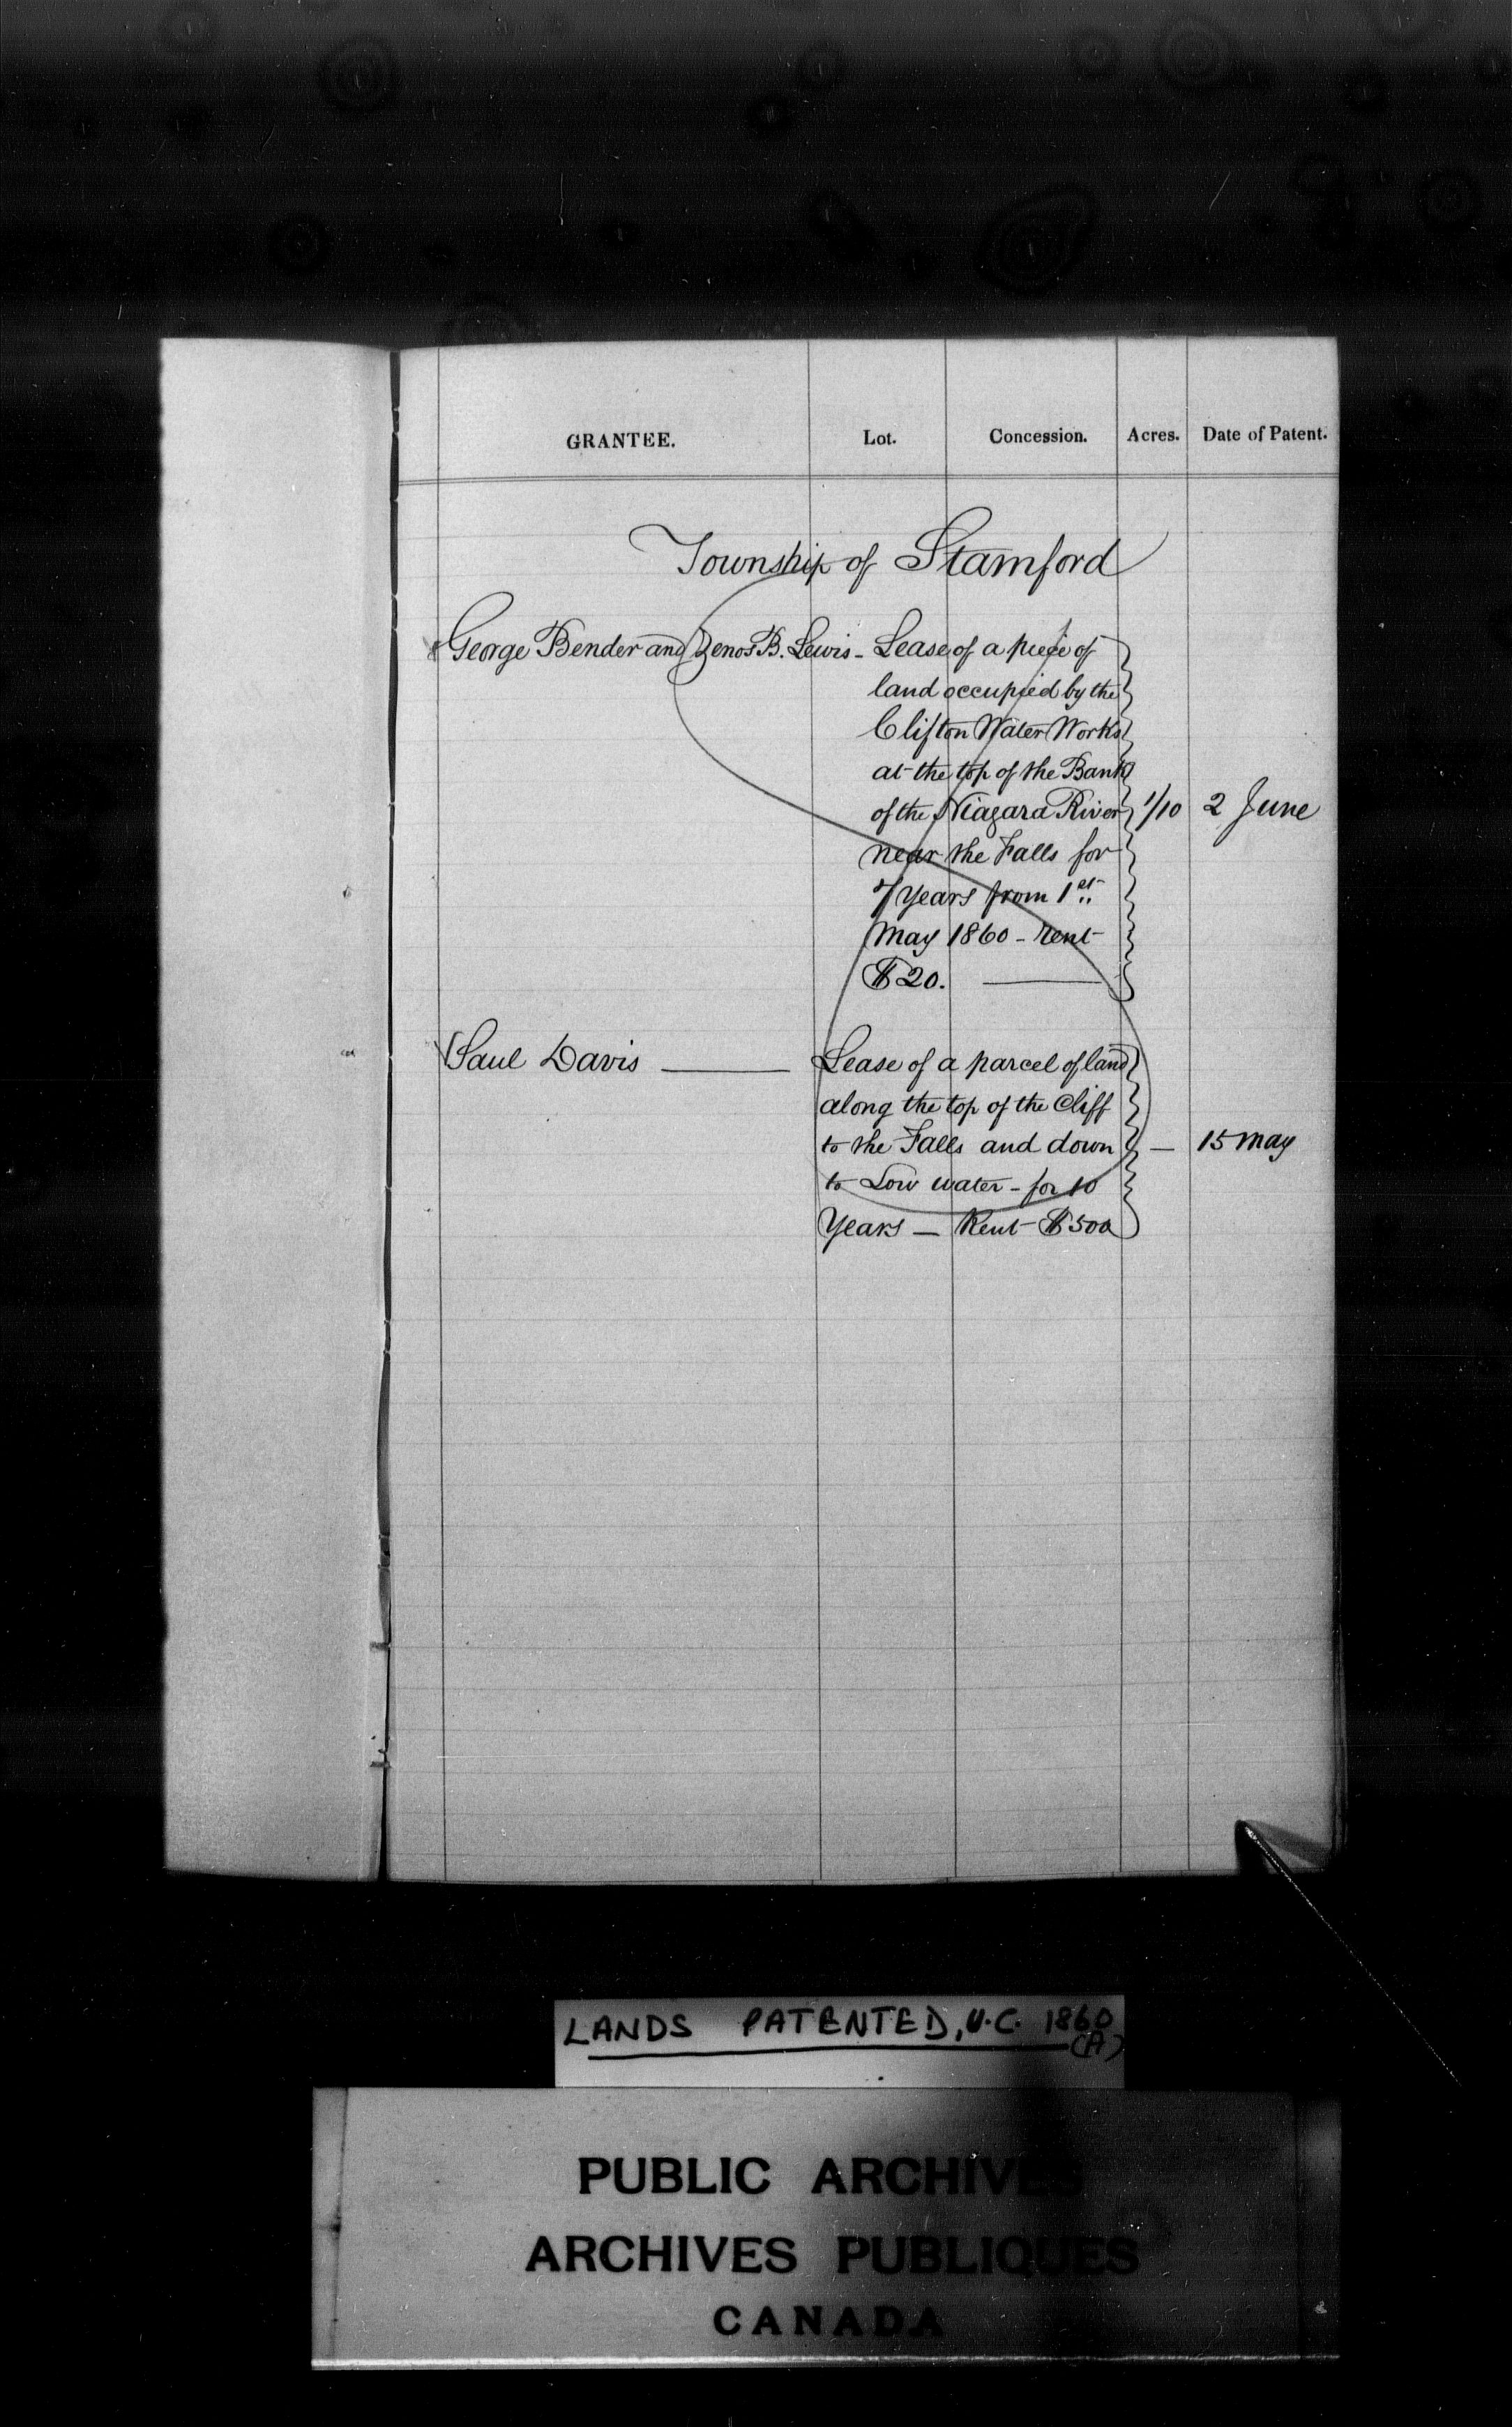 GRANTEE. Lot. Concession. Acres. Date of Patent.
Township of Stamford
George Bender and Zenos B. Lewis - Lease of a piece of
land occupied by the
Clifton Water Works
at the top of the Bank
of the Niagara River 1/10 2 June
near the Falls for
7 years from 1st
May 1860 - rent
$20. —
Saul Davis — Lease of a parcel of land
along the top of the Cliff
to the Falls and down — 15 May
to Low water - for 10
Years — Rent $500
LANDS PATENTED, U.C. 1860
(A)
PUBLIC ARCHIVES
ARCHIVES PUBLIQUES
CANADA